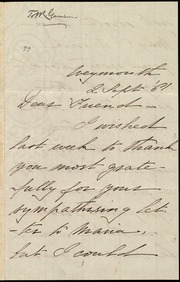 Weymouth
2 Sept
Dear Friend —
I wished
last week to thank
you most grate-
fully for your
sympathising let-
ter to Maria,
but I could